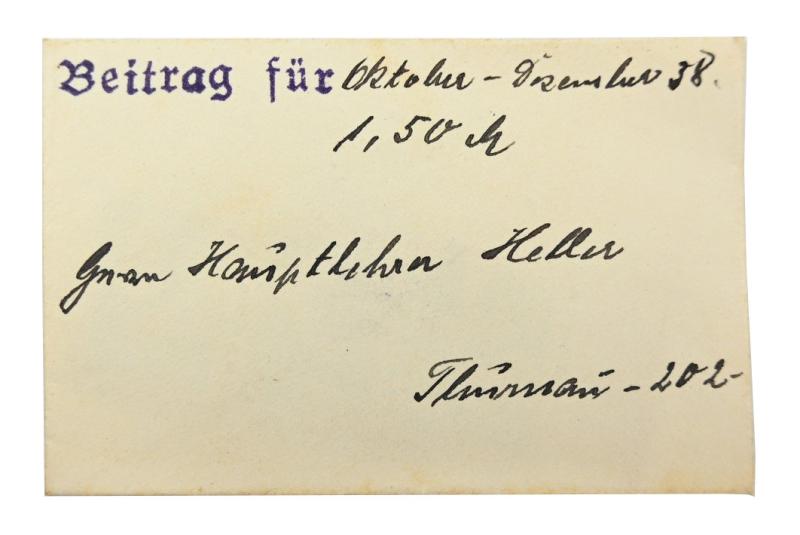 Beitrag für Oktober - Dezember 38.
1,50 M
Frau Hauptlehrer Heller
Thurnau - 202 -